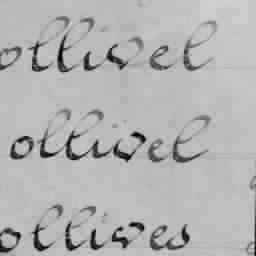 ollivel
ollivel
ollives